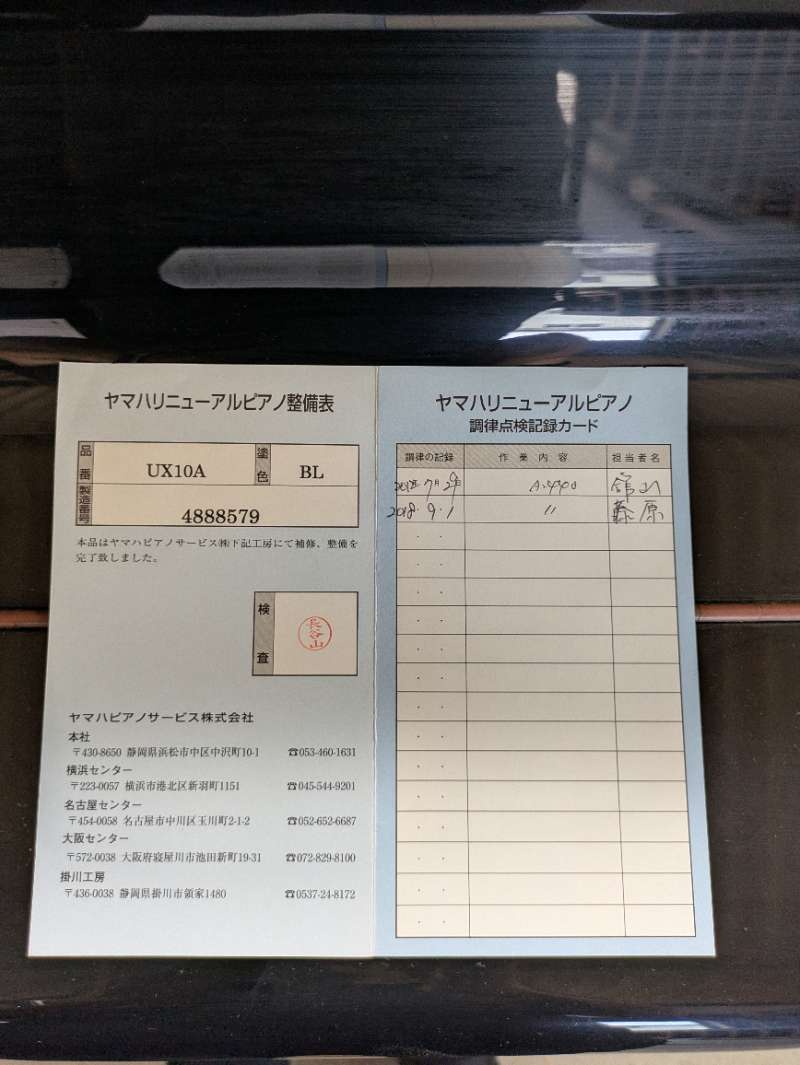 ヤマハリニューアルピアノ整備表
品番 UX10A 塗色 BL
製造番号 4888579
本品はヤマハピアノサービス㈱下記工房にて補修、整備を
完了致しました。
検査 長谷山
ヤマハピアノサービス株式会社
本社
〒430-8650 静岡県浜松市中区中沢町10-1 ☎053-460-1631
横浜センター
〒223-0057 横浜市港北区新羽町1151 ☎045-544-9201
名古屋センター
〒454-0058 名古屋市中川区玉川町2-1-2 ☎052-652-6687
大阪センター
〒572-0038 大阪府寝屋川市池田新町19-31 ☎072-829-8100
掛川工房
〒436-0038 静岡県掛川市領家1480 ☎0537-24-8172
ヤマハリニューアルピアノ
調律点検記録カード
調律の記録 作業内容 担当者名
7月29
2018.9.1 〃 藤原